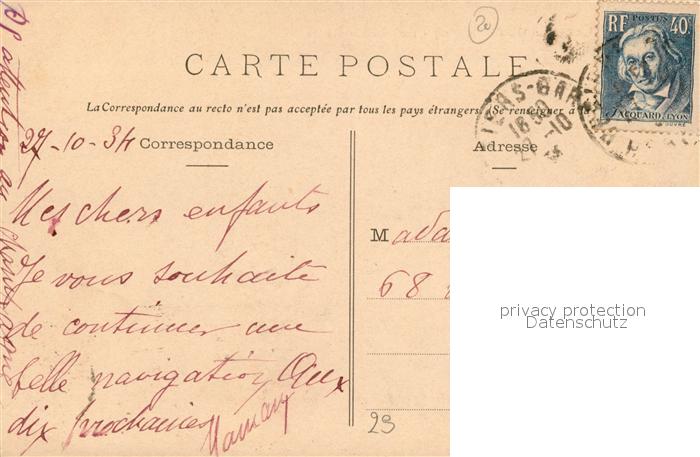 20
RF POSTES 40c
JACQUARD. LYON
CARTE POSTALE
La Correspondance au recto n'est pas acceptée par tous les pays étrangers. (Se renseigner à la
27-10-34 Correspondance
Adresse
Mes chers enfants
Je vous souhaite
de continuer une
belle navigation, Aux
dix prochaines
Maman
Mada
68
23
privacy protection
Datenschutz